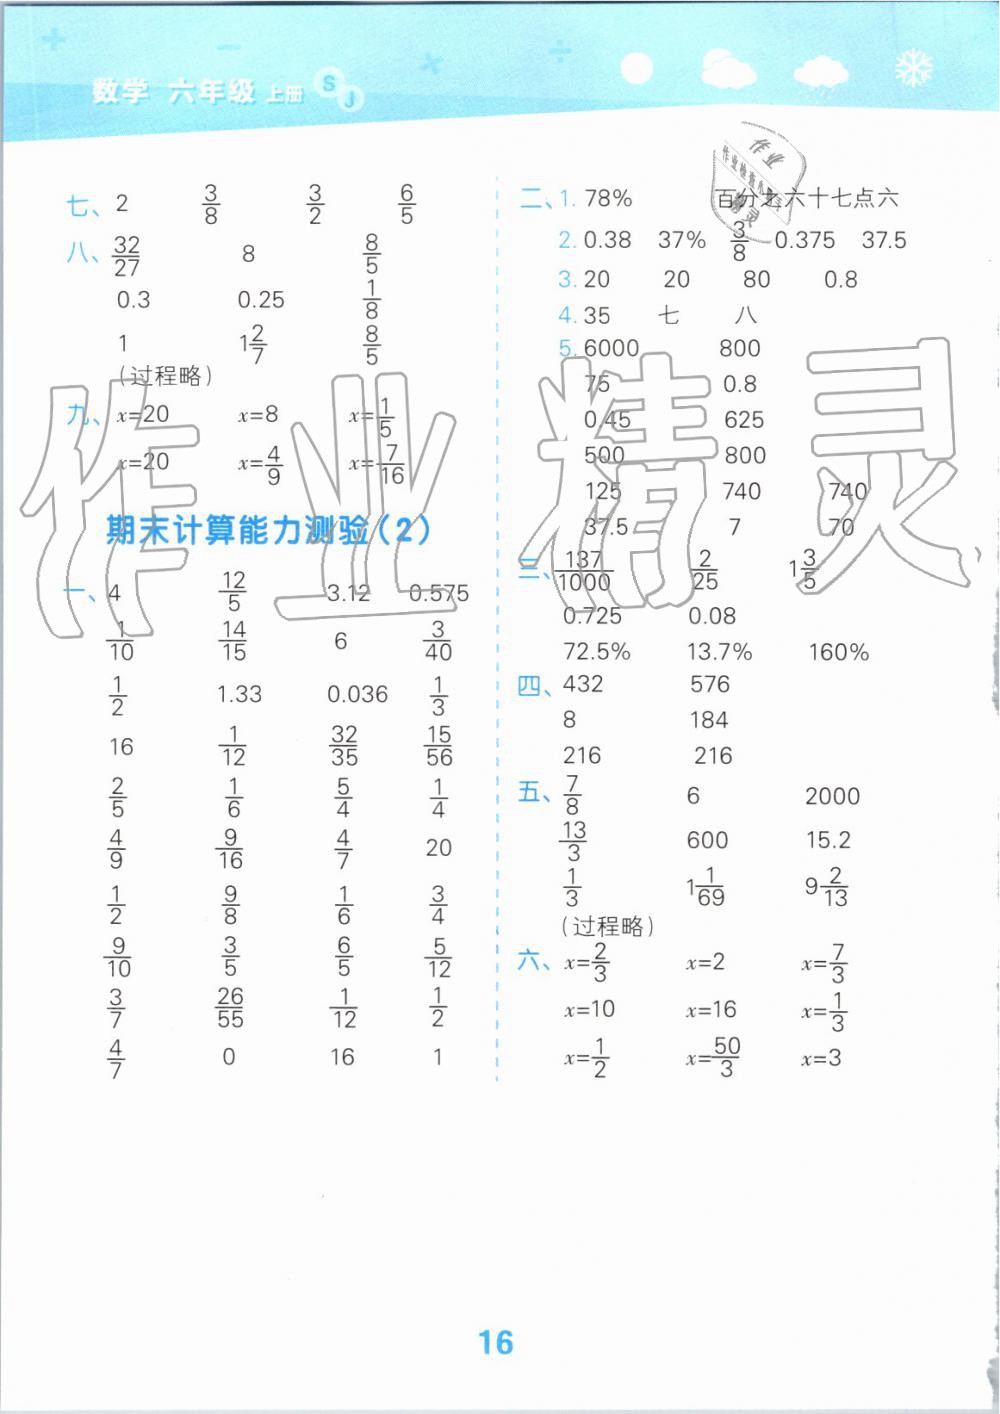 数学 六年级 上册 SJ
七、2 3/8 3/2 6/5
八、32/27 8 8/5
0.3 0.25 1/8
1 1 2/7 8/5
(过程略)
九、x=20 x=8 x=1/5
x=20 x=4/9 x=7/16
期末计算能力测验(2)
一、4 12/5 3.12 0.575
1/10 14/15 6 3/40
1/2 1.33 0.036 1/3
16 1/12 32/35 15/56
2/5 1/6 5/4 1/4
4/9 9/16 4/7 20
1/2 9/8 1/6 3/4
9/10 3/5 6/5 5/12
3/7 26/55 1/12 1/2
4/7 0 16 1
二、1. 78% 百分之六十七点六
2. 0.38 37% 3/8 0.375 37.5
3. 20 20 80 0.8
4. 35 七 八
5. 6000 800
75 0.8
0.45 625
500 800
125 740 740
37.5 7 70
三、137/1000 2/25 1 3/5
0.725 0.08
72.5% 13.7% 160%
四、432 576
8 184
216 216
五、7/8 6 2000
13/3 600 15.2
1/3 1 1/69 9 2/13
(过程略)
六、x=2/3 x=2 x=7/3
x=10 x=16 x=1/3
x=1/2 x=50/3 x=3
作业精灵
16